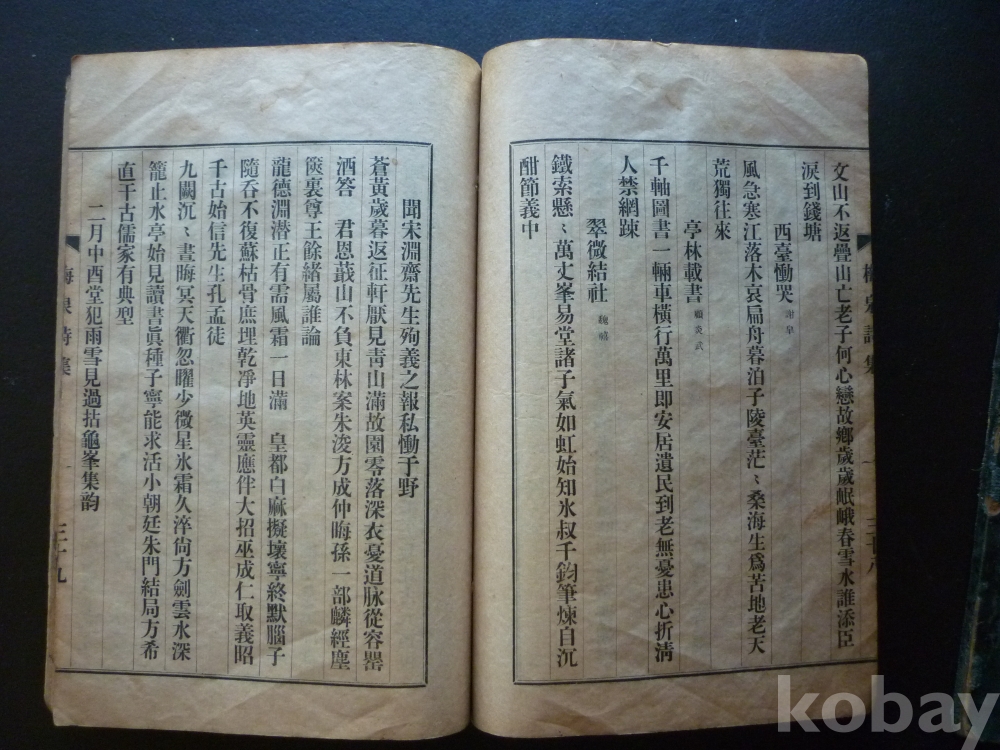 文山不返疊山亡老子何心戀故鄉歲歲岷峨春雪水誰添臣
淚到錢塘
西臺慟哭 謝皐
風急寒江落木哀扁舟暮泊子陵臺茫〻桑海生爲苦地老天
荒獨往來
亭林載書 顧炎武
千軸圖書一輛車橫行萬里即安居遺民到老無憂患心折淸
人禁網踈
翠微結社 魏禧
鐵索懸〻萬丈峯易堂諸子氣如虹始知氷叔千鈞筆煉自沉
酣節義中
梅泉詩集 三十八
聞宋淵齋先生殉義之報私慟于野
蒼黃歲暮返征軒厭見靑山滿故園零落深衣憂道脉從容罌
酒答 君恩戢山不負東林案朱浚方成仲晦孫一部麟經塵
篋裏尊王餘緖屬誰論
龍德淵潛正有需風霜一日滿 皇都白麻擬壞寧終默腦子
隨呑不復蘇枯骨庶埋乾凈地英靈應伴大招巫成仁取義昭
千古始信先生孔孟徒
九闕沉〻晝晦冥天衢忽曜少微星氷霜久淬尙方劍雲水深
籠止水亭始見讀書眞種子寧能求活小朝廷朱門結局方希
直千古儒家有典型
二月中酉堂犯雨雪見過拈龜峯集韵
梅泉詩集 三十九
kobay